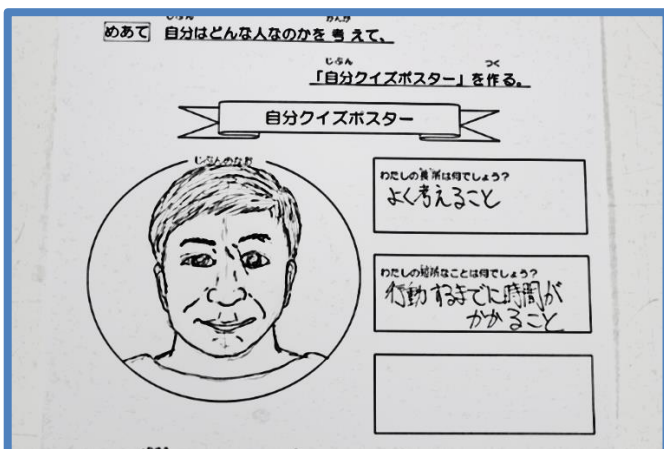 めあて 自分はどんな人なのかを考えて、
「自分クイズポスター」を作る。
自分クイズポスター
じぶんのかお
わたしの長所は何でしょう?
よく考えること
わたしの短所なことは何でしょう?
行動するまでに時間が
かかること